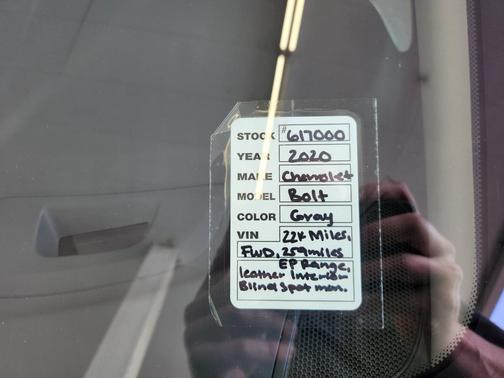 STOCK #617000
YEAR 2020
MAKE Chevrolet
MODEL Bolt
COLOR Gray
VIN 22k Miles,
FWD, 259miles
EP Range,
leather Interior
Blind Spot mon.